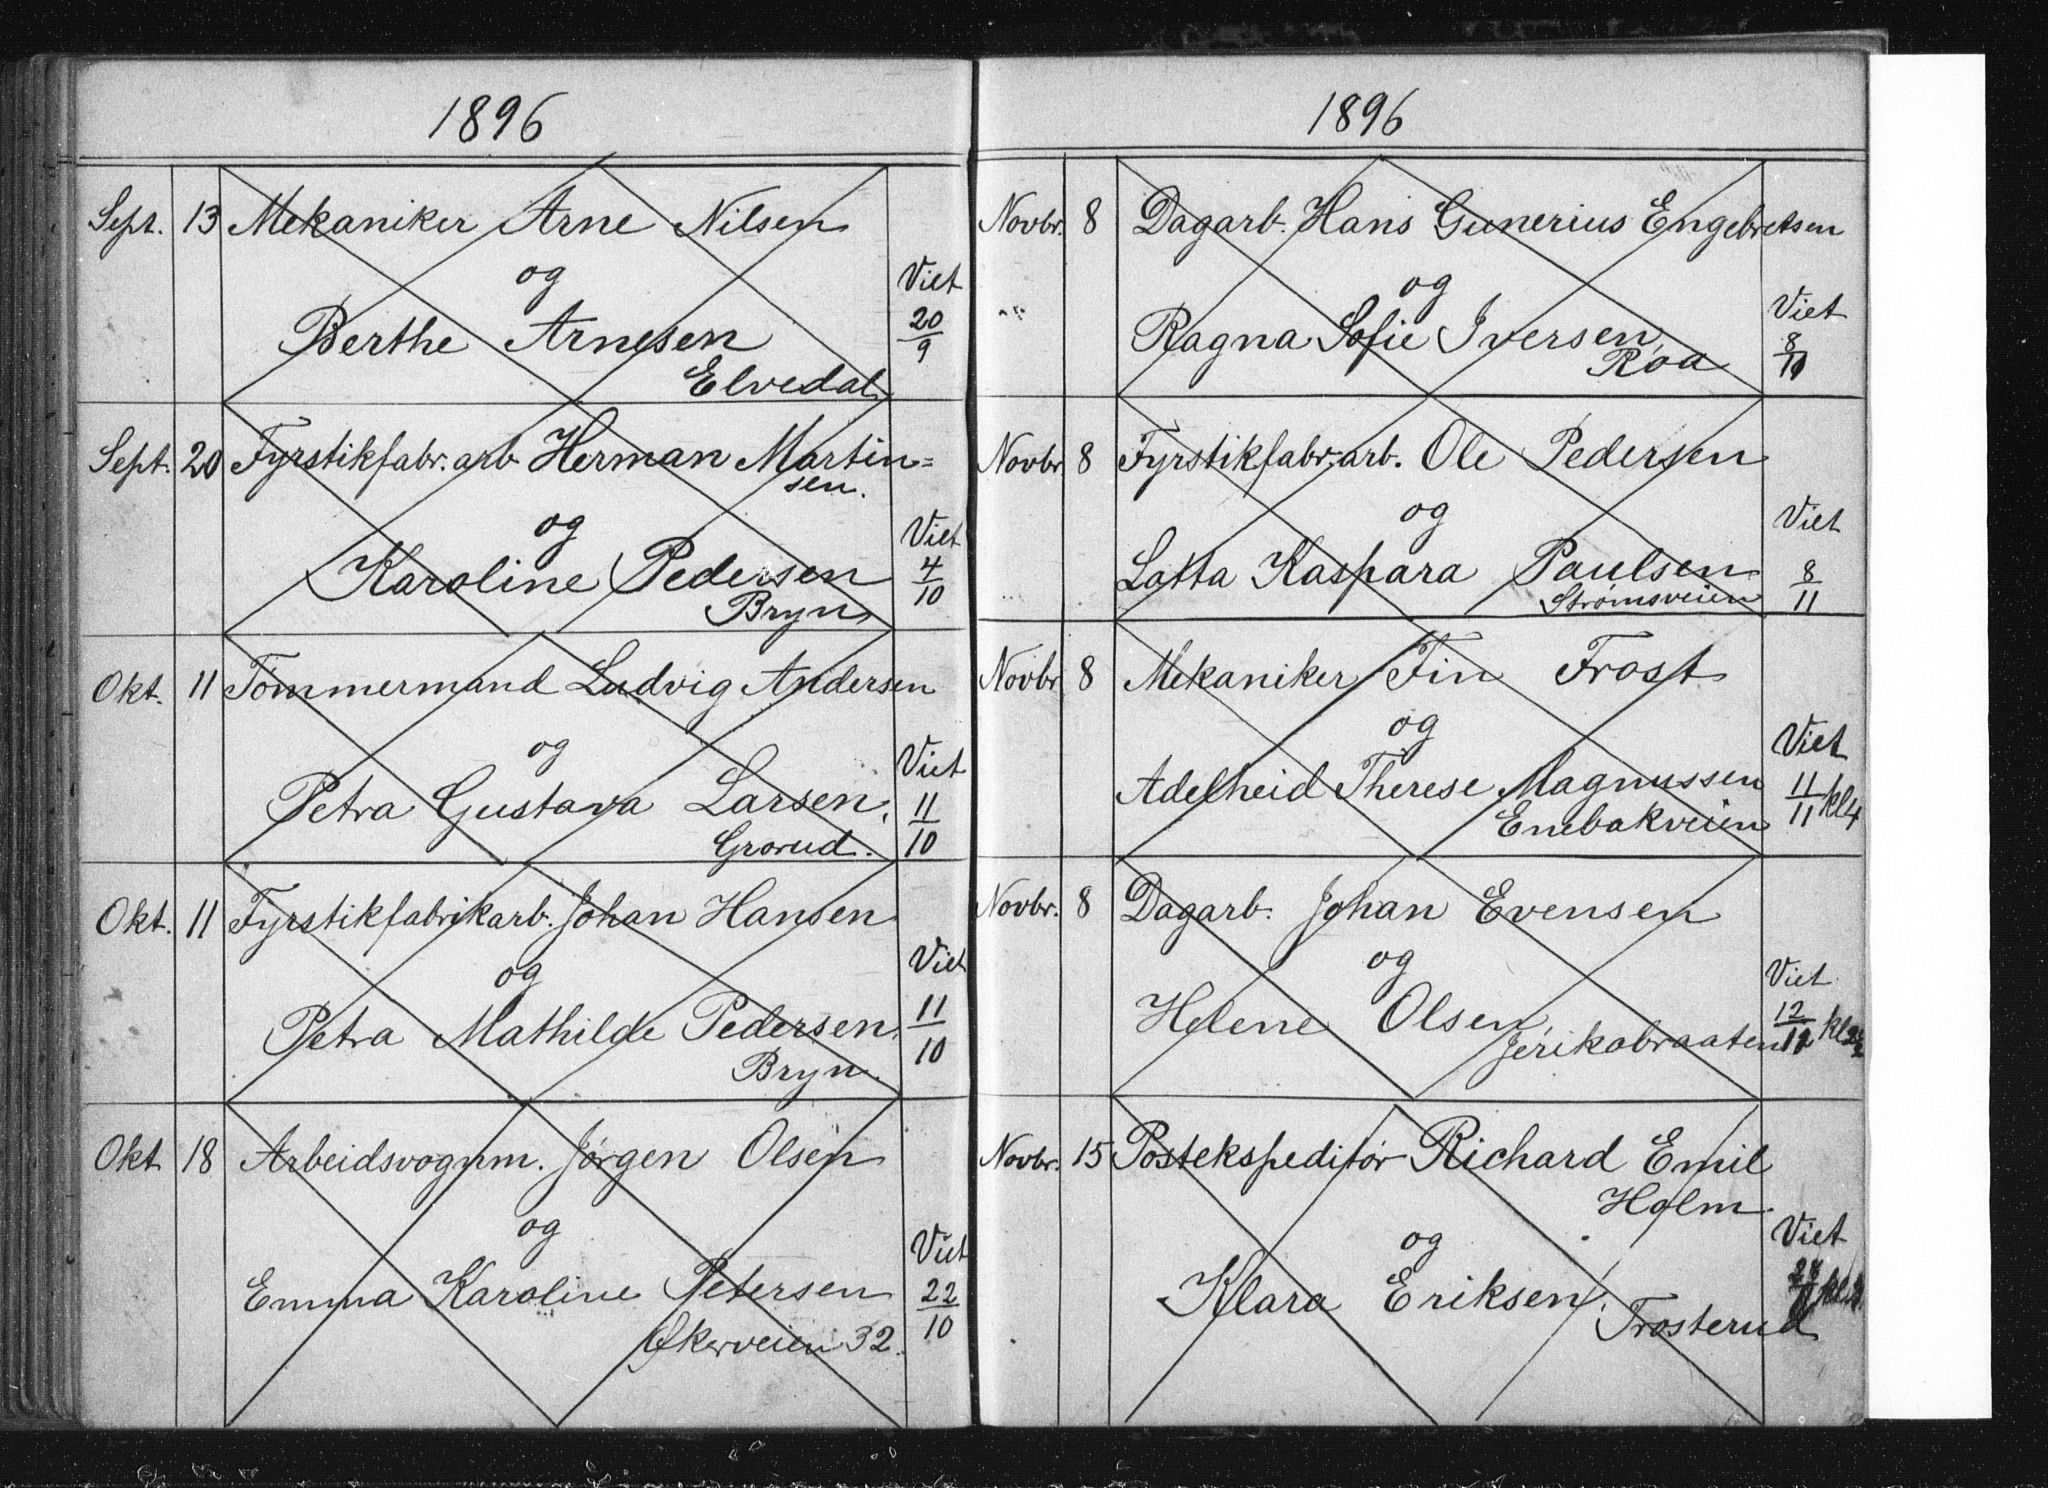 1896
Sept. 13 Mekaniker Arne Nilsen
og
Viet
Berthe Arnesen
20/9
Elvedal
Sept. 20 Fyrstikfabr. arb. Herman Martin=
sen.
og
Viet
Karoline Pedersen
4/10
Bryn
Okt. 11 Tømmermand Ludvig Andersen
og
Viet
Petra Gustava Larsen.
11/10
Grorud.
Okt. 11 Fyrstikfabrikarb. Johan Hansen
og
Viet
Petra Mathilde Pedersen.
11/10
Bryn.
Okt 18 Arbeidsvognm. Jørgen Olsen
og
Viet
Emma Karoline Petersen
22/10
Økerveien 32.
1896
Novbr. 8 Dagarb. Hans Gunerius Engebretsen
og
Viet
Ragna Sofie Iversen,
8/11
Roa
Novbr 8 Fyrstikfabr. arb. Ole Pedersen
og
Viet
Lotta Kaspara Paulsen
8/11
Strømsveien
Novbr 8 Mekaniker Fin Frost
og
Viet
Adelheid Therese Magnussen
11/11 kl 4
Enebakveien
Novbr. 8 Dagarb. Johan Evensen
og
Viet
Helene Olsen,
12/12 kl
Jerikobraaten
Novbr. 15 Postekspeditør Richard Emil
Holm
og
Viet
Klara Eriksen.
kl.
Frosterud